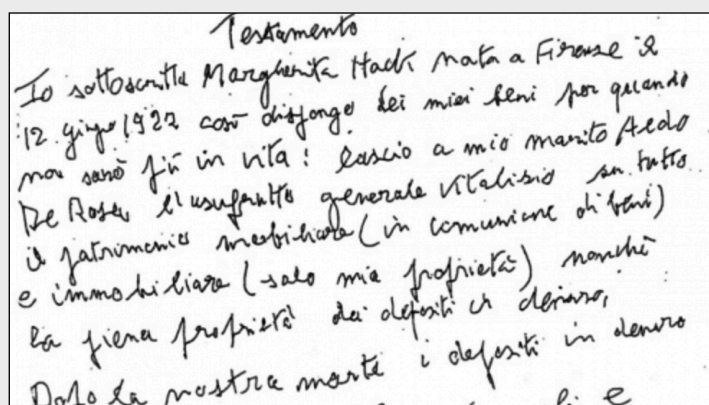 Testamento
Io sottoscritta Margherita Hack nata a Firenze il
12 giugno 1922 così dispongo dei miei beni per quando
non sarò più in vita: lascio a mio marito Aldo
De Rosa l'usufrutto generale vitalizio su tutto
il patrimonio mobiliare (in comunione di beni)
e immobiliare (solo mia proprietà) nonché
la piena proprietà dei depositi in denaro,
Dopo la nostra morte i depositi in denaro
e